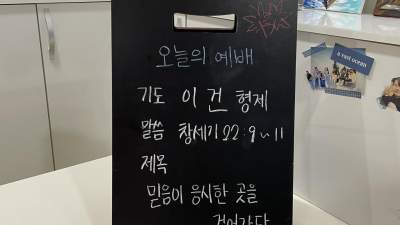 오늘의 예배
기도 이 건 형제
말씀 창세기 22:9~11
제목
믿음이 응시한 곳을
걸어가다